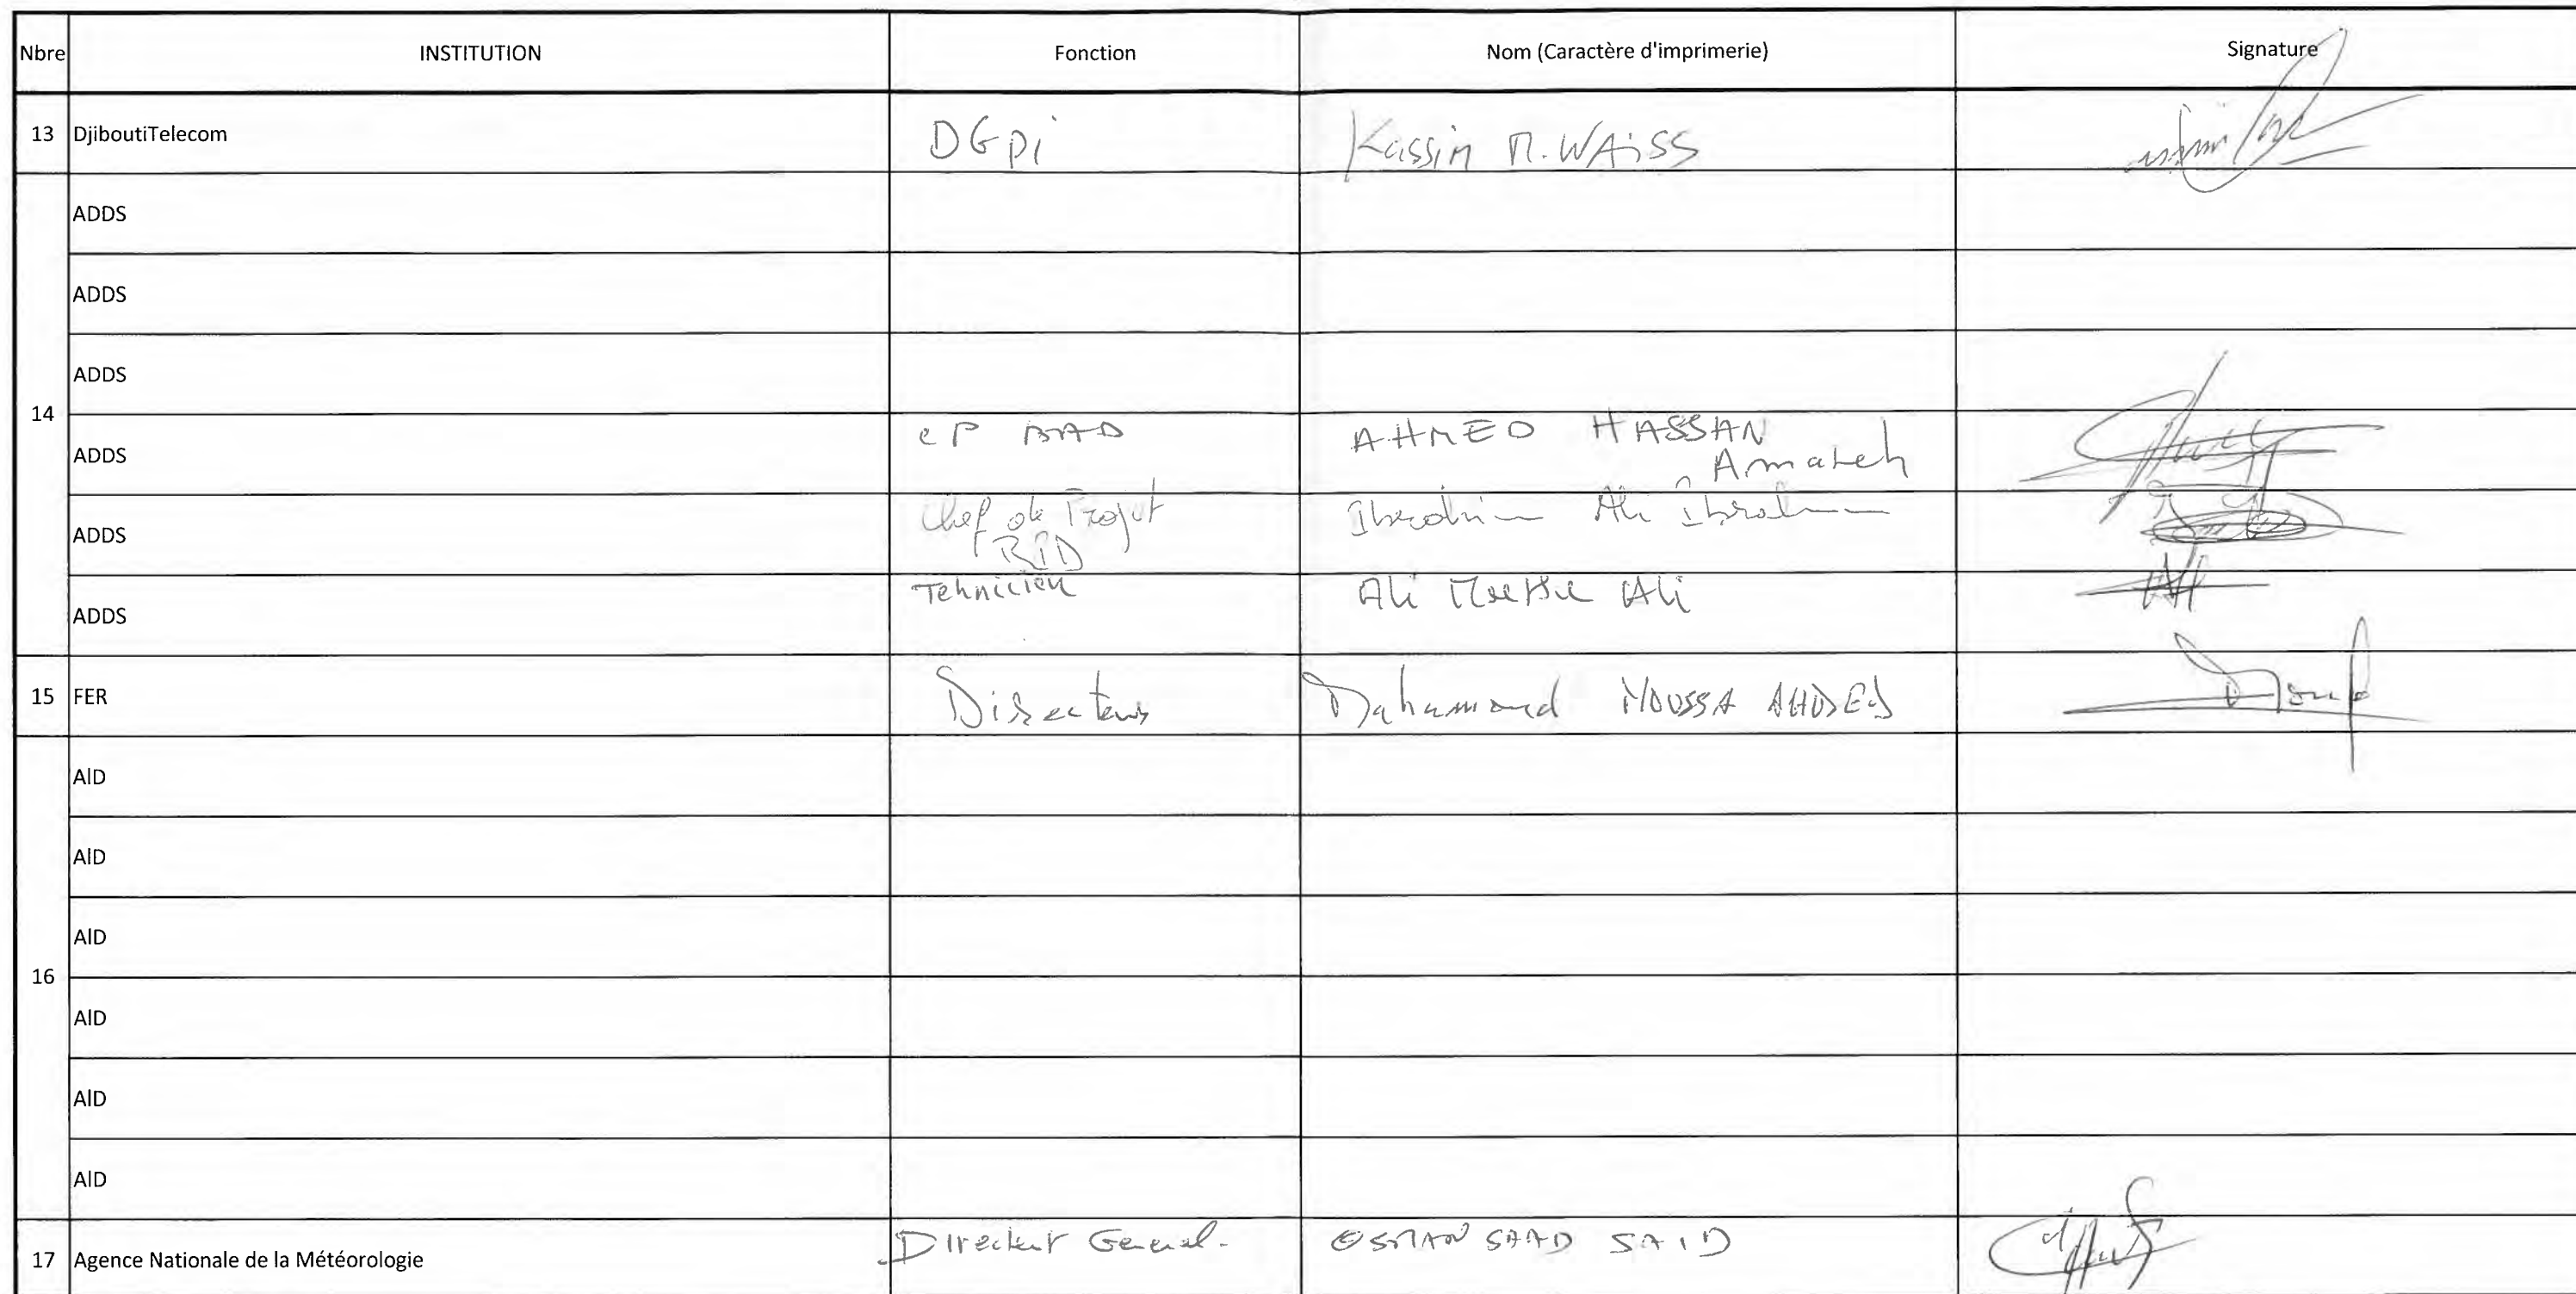 Nbre INSTITUTION Fonction Nom (Caractère d'imprimerie) Signature
13 DjiboutiTelecom DGPi Kassim M. WAiSS
ADDS
ADDS
ADDS
14
ADDS CP BAD AHMED HASSAN
Amareh
ADDS Chef de Projet Ibrahim Ali Ibrahim
RID
ADDS Tehnicien Ali Ali
15 FER Directeur Mahamoud MOUSSA AHMED
AID
AID
AID
16
AID
AID
AID
17 Agence Nationale de la Météorologie Directeur General. OSMAN SAAD SAID